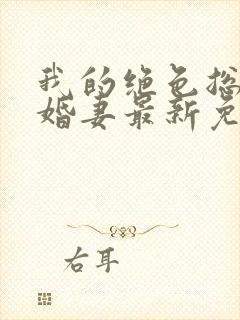 我的绝色总
婚妻最新免
右耳